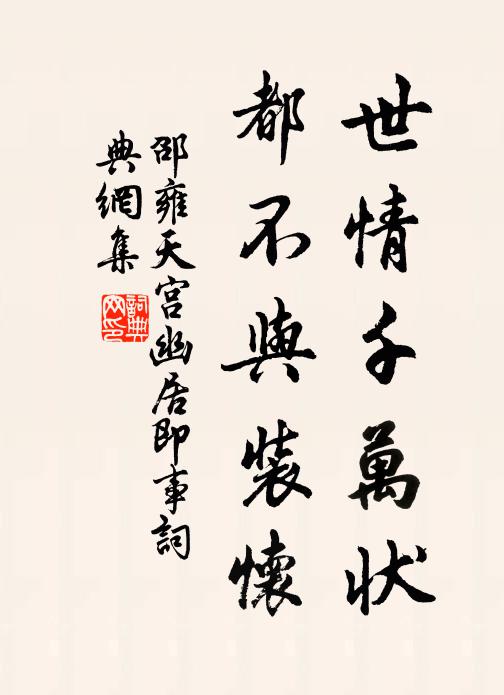 世情千萬狀
都不與裝懷
邵雍天宮幽居即事詞
典網集
詞典网印